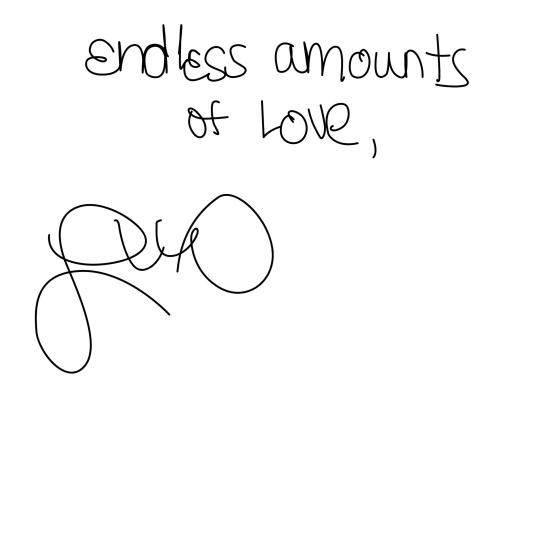 endless amounts
of Love,